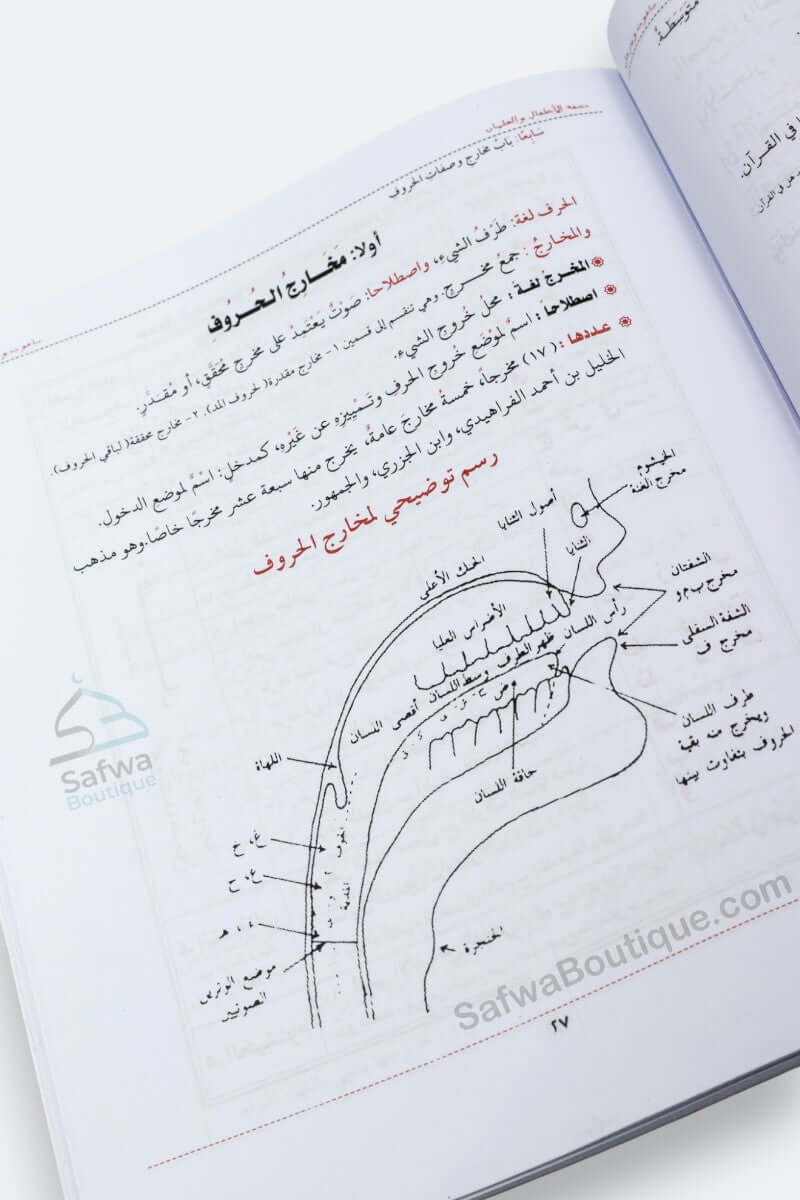 تحفة الأطفال والغلمان
سَابِعًا: بابُ مخارج وصفات الحروف
أولا: مَخَارِجُ الحُرُوفِ
الحرف لغة: طَرْفُ الشيءِ، واصطلاحا: صَوْتٌ يَعْتَمِدُ على مخرجٍ مُحَقَّقٍ، أو مُقَدَّرٍ.
والمخارجُ: جمعُ مخرج. وهي تنقسم إلى قسمين ١- مخارج مقدرة (حروف المد). ٢- مخارج محققة (لباقي الحروف).
المخرج لغة: محلُ خُروجِ الشيءِ.
اصطلاحًا: اسمٌ لموْضِع خُروجِ الحرف وتَمْيِيزِهِ عن غَيْرِهِ، كمدخلٍ: اسْمٌ لموضع الدخول.
عددها: (١٧) مخرجاً، خمسةُ مخارجَ عامةٌ، يخرج منها سبعة عشر مخرجًا خاصًا. وهو مذهب
الخليل بن أحمد الفراهيدي، وابن الجزري، والجمهور.
رسم توضيحي لمخارج الحروف
الخيشوم
مخرج الغنة
أصول الثنايا
الثنايا
الحنك الأعلى
الأضراس العليا
الشفتان
مخرج ب م و
رأس اللسان
الشفة السفلى
مخرج ف
ظهر الطرف
وسط اللسان
أقصى اللسان
طرف اللسان
ويخرج منه بقية
الحروف بتفاوت بينها
حافة اللسان
اللهاة
غ، خ
ع، ح
ء، هـ
الجوف
موضع الوترين
الصوتيين
الحنجرة
٢٧
متوسّطةٌ.
في القرآن.
Safwa
Boutique
SafwaBoutique.com